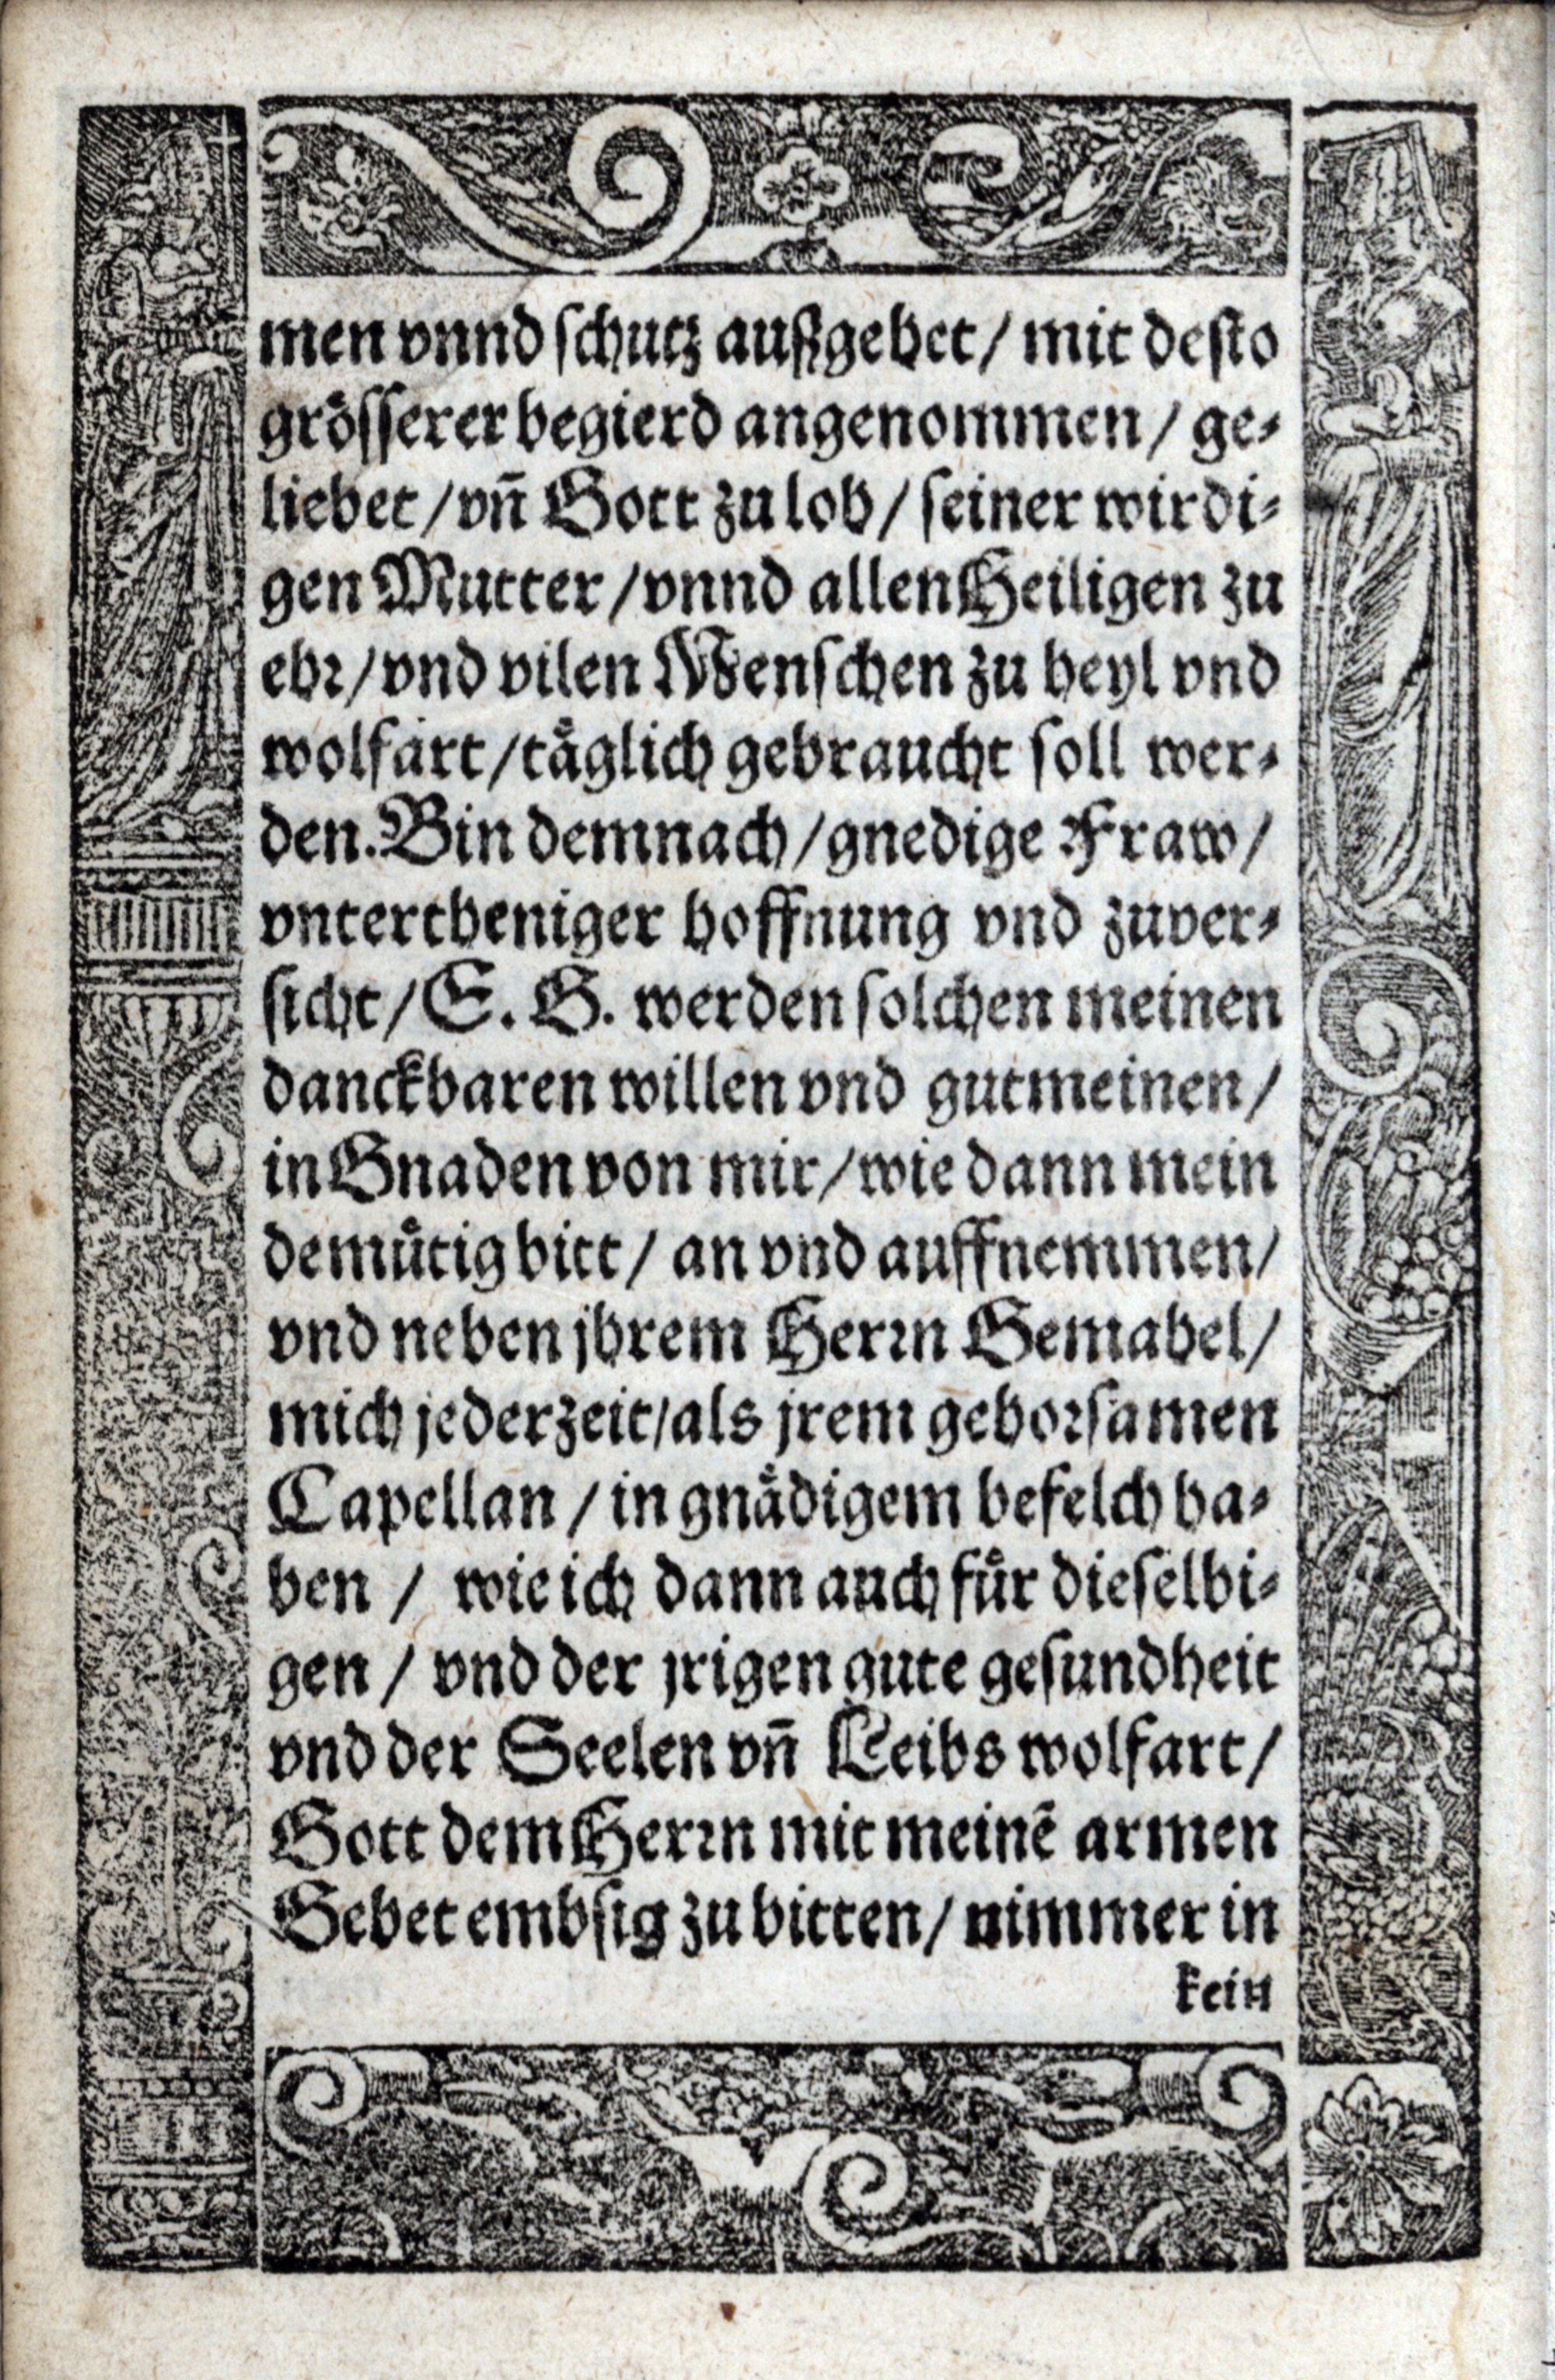 men vnnd schutz außgehet / mit desto
grösserer begierd angenommen / ge⸗
liebet / vn̄ Gott zu lob / seiner wirdi⸗
gen Mutter / vnnd allen Heiligen zu
ehr / vnd vilen Menschen zu heyl vnd
wolfart / täglich gebraucht soll wer⸗
den. Bin demnach / gnedige Fraw /
vntertheniger hoffnung vnd zuver⸗
sicht / E. G. werden solchen meinen
danckbaren willen vnd gutmeinen /
in Gnaden von mir / wie dann mein
demütig bitt / an vnd auffnemmen /
vnd neben jhrem Herrn Gemahel /
mich jederzeit / als jrem gehorsamen
Capellan / in gnädigem befelch ha⸗
ben / wie ich dann auch für dieselbi⸗
gen / vnd der jrigen gute gesundheit
vnd der Seelen vn̄ Leibs wolfart /
Gott dem Herrn mit meinē armen
Gebet embsig zu bitten / nimmer in
kein